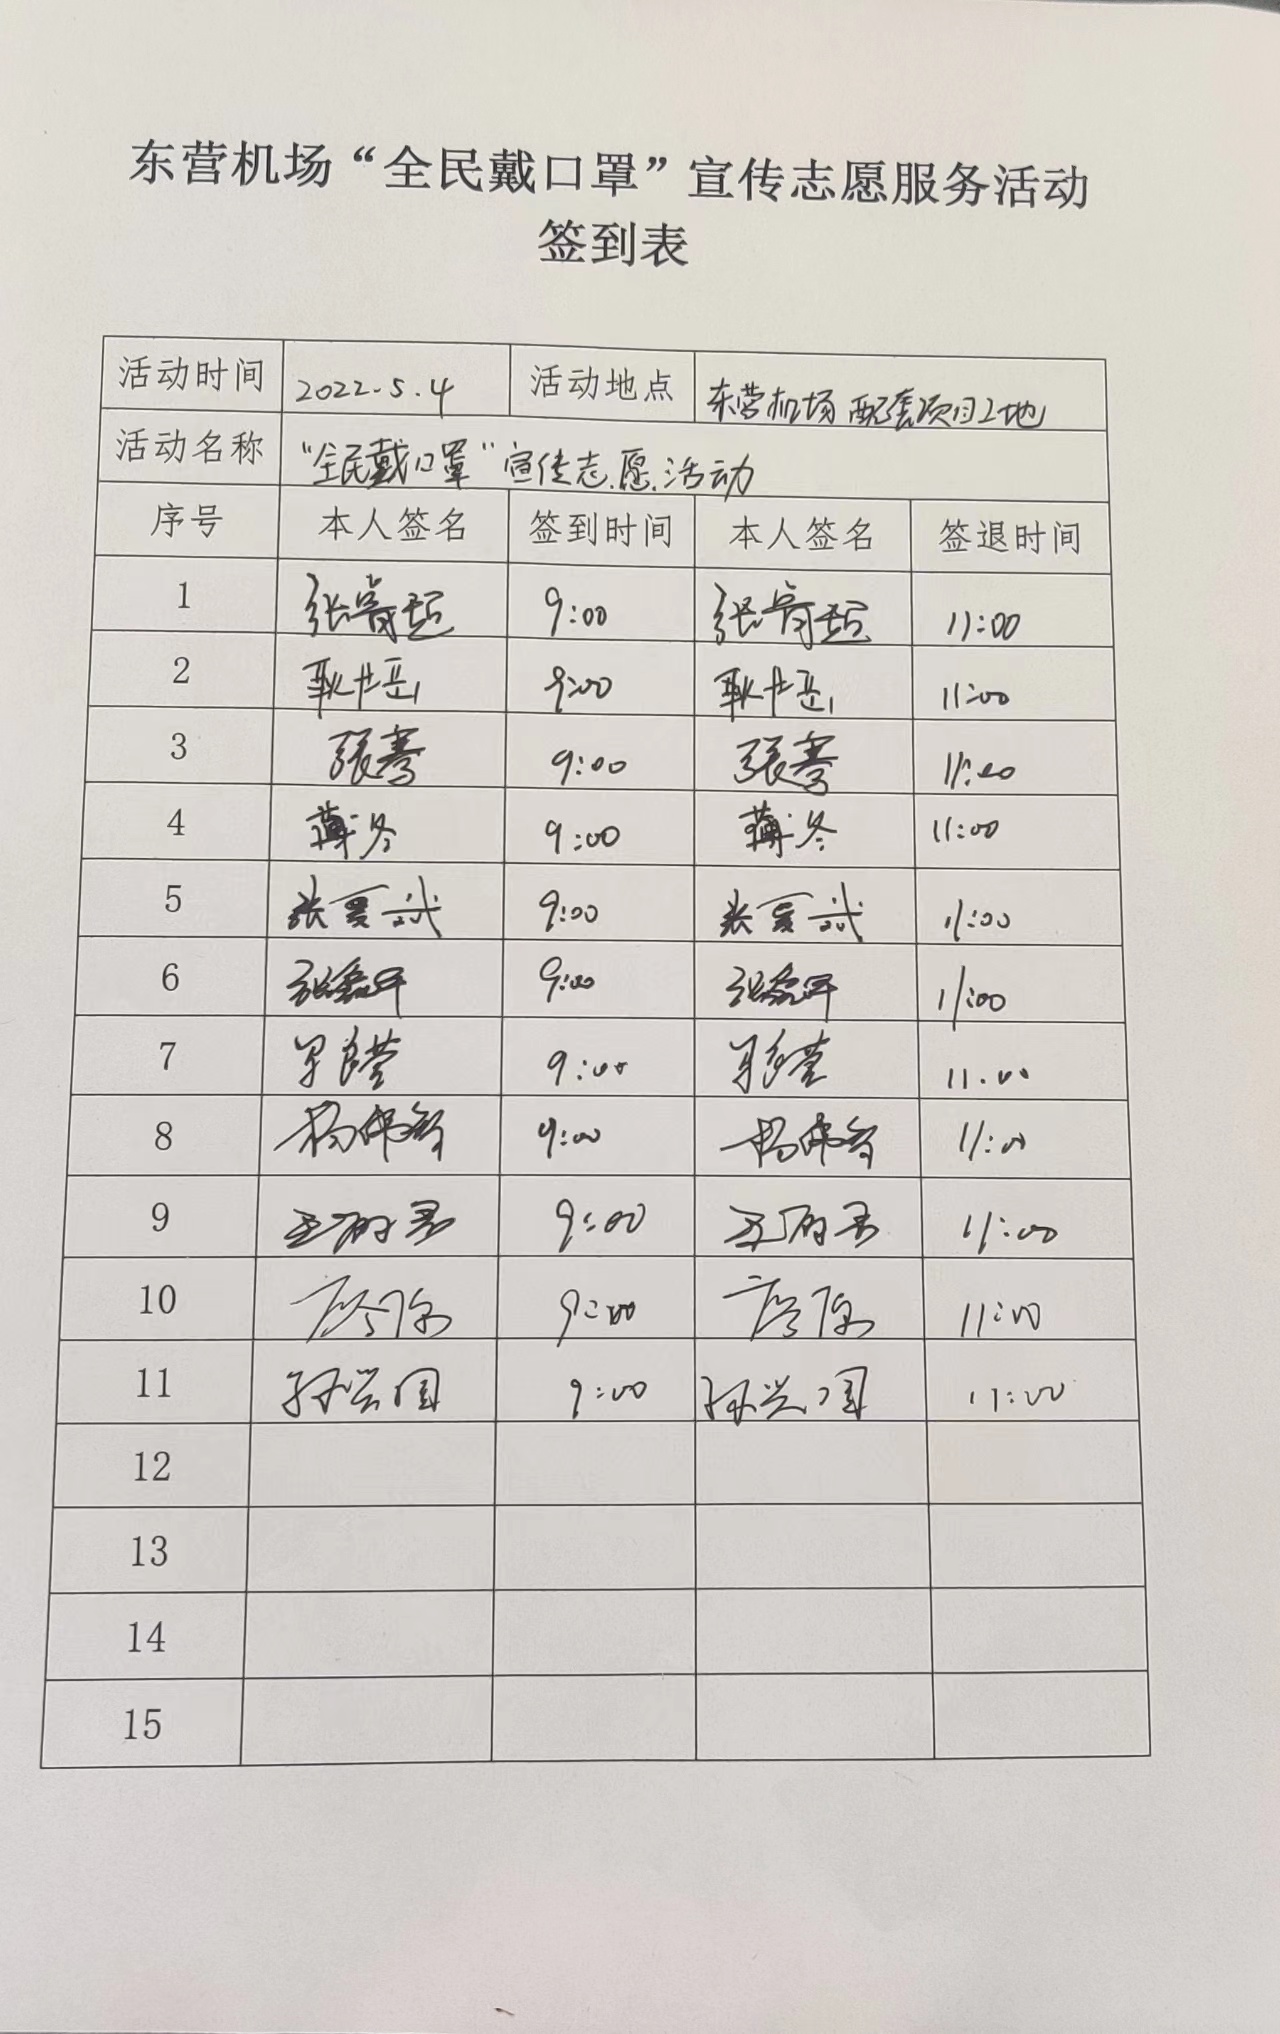 东营机场“全民戴口罩”宣传志愿服务活动
签到表
活动时间 2022.5.4 活动地点 东营机场配套项目工地
活动名称 “全民戴口罩”宣传志愿活动
序号 本人签名 签到时间 本人签名 签退时间
1 9:00 11:00
2 耿世岳 9:00 耿世岳 11:00
3 張骞 9:00 張骞 11:00
4 薄冬 9:00 薄冬 11:00
5 张夏斌 9:00 张夏斌 11:00
6 9:00 11:00
7 9:00 11:00
8 杨伟 9:00 杨伟 11:00
9 9:00 11:00
10 9:00 11:00
11 孙兴国 9:00 孙兴国 11:00
12
13
14
15